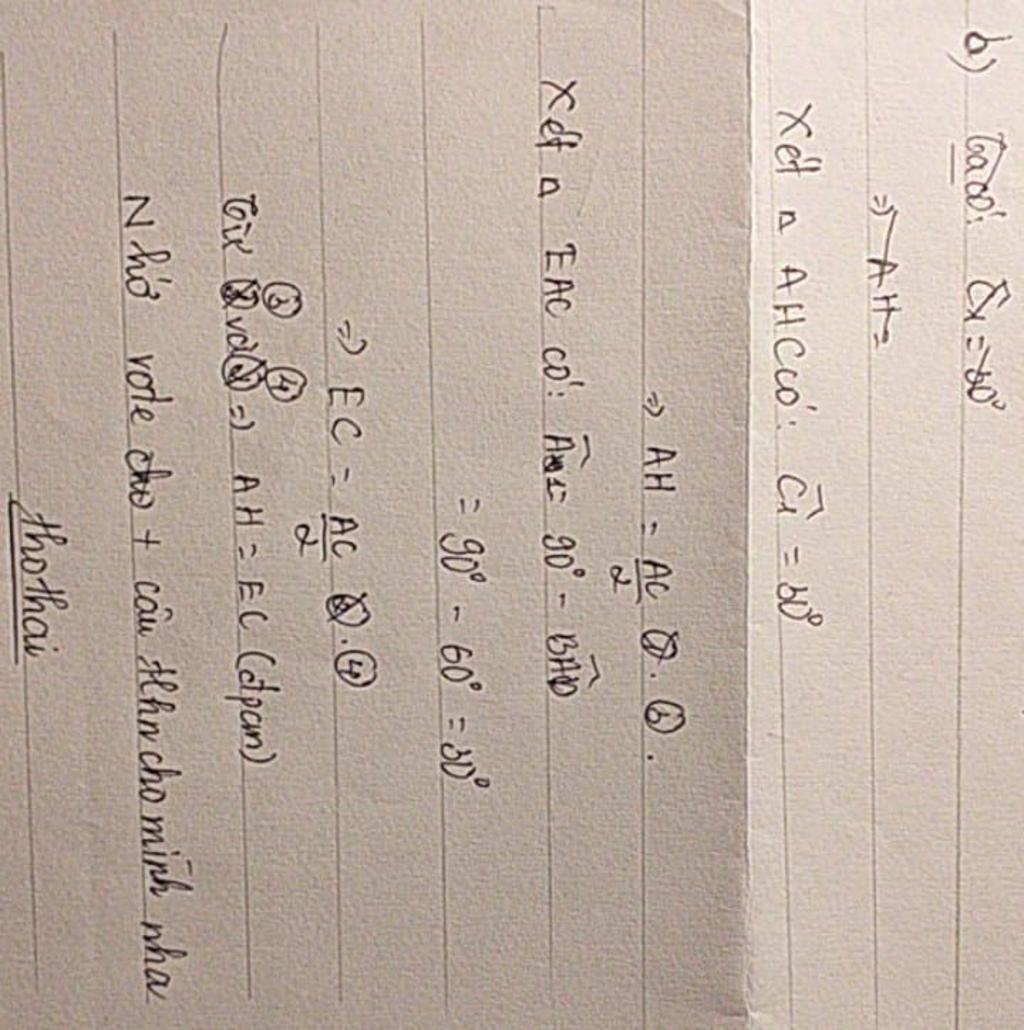 b) Ta có: Ĉ₁ = 30°
=> AH =
Xét ∆ AHC có: Ĉ₁ = 30°
=> AH = AC/2 . ③ .
Xét ∆ EAC có: Â₁ = 90° - BAD̂
= 90° - 60° = 30°
=> EC = AC/2 . ④
Từ ③ và ④ => AH = EC (đpcm)
Nhớ vote cho + cảm thn cho mình nha
thothai